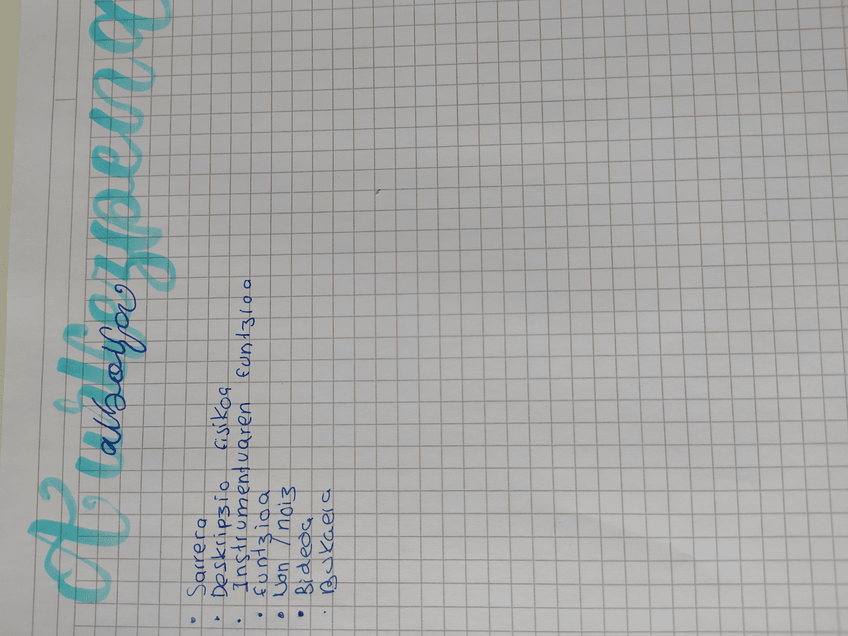 Aurkezpena
alboka
• Sarrera
• Deskripzio fisikoa
• Instrumentuaren funtzioa
• funtzioa
• Non / noiz
• Bideoa
• Bukaera